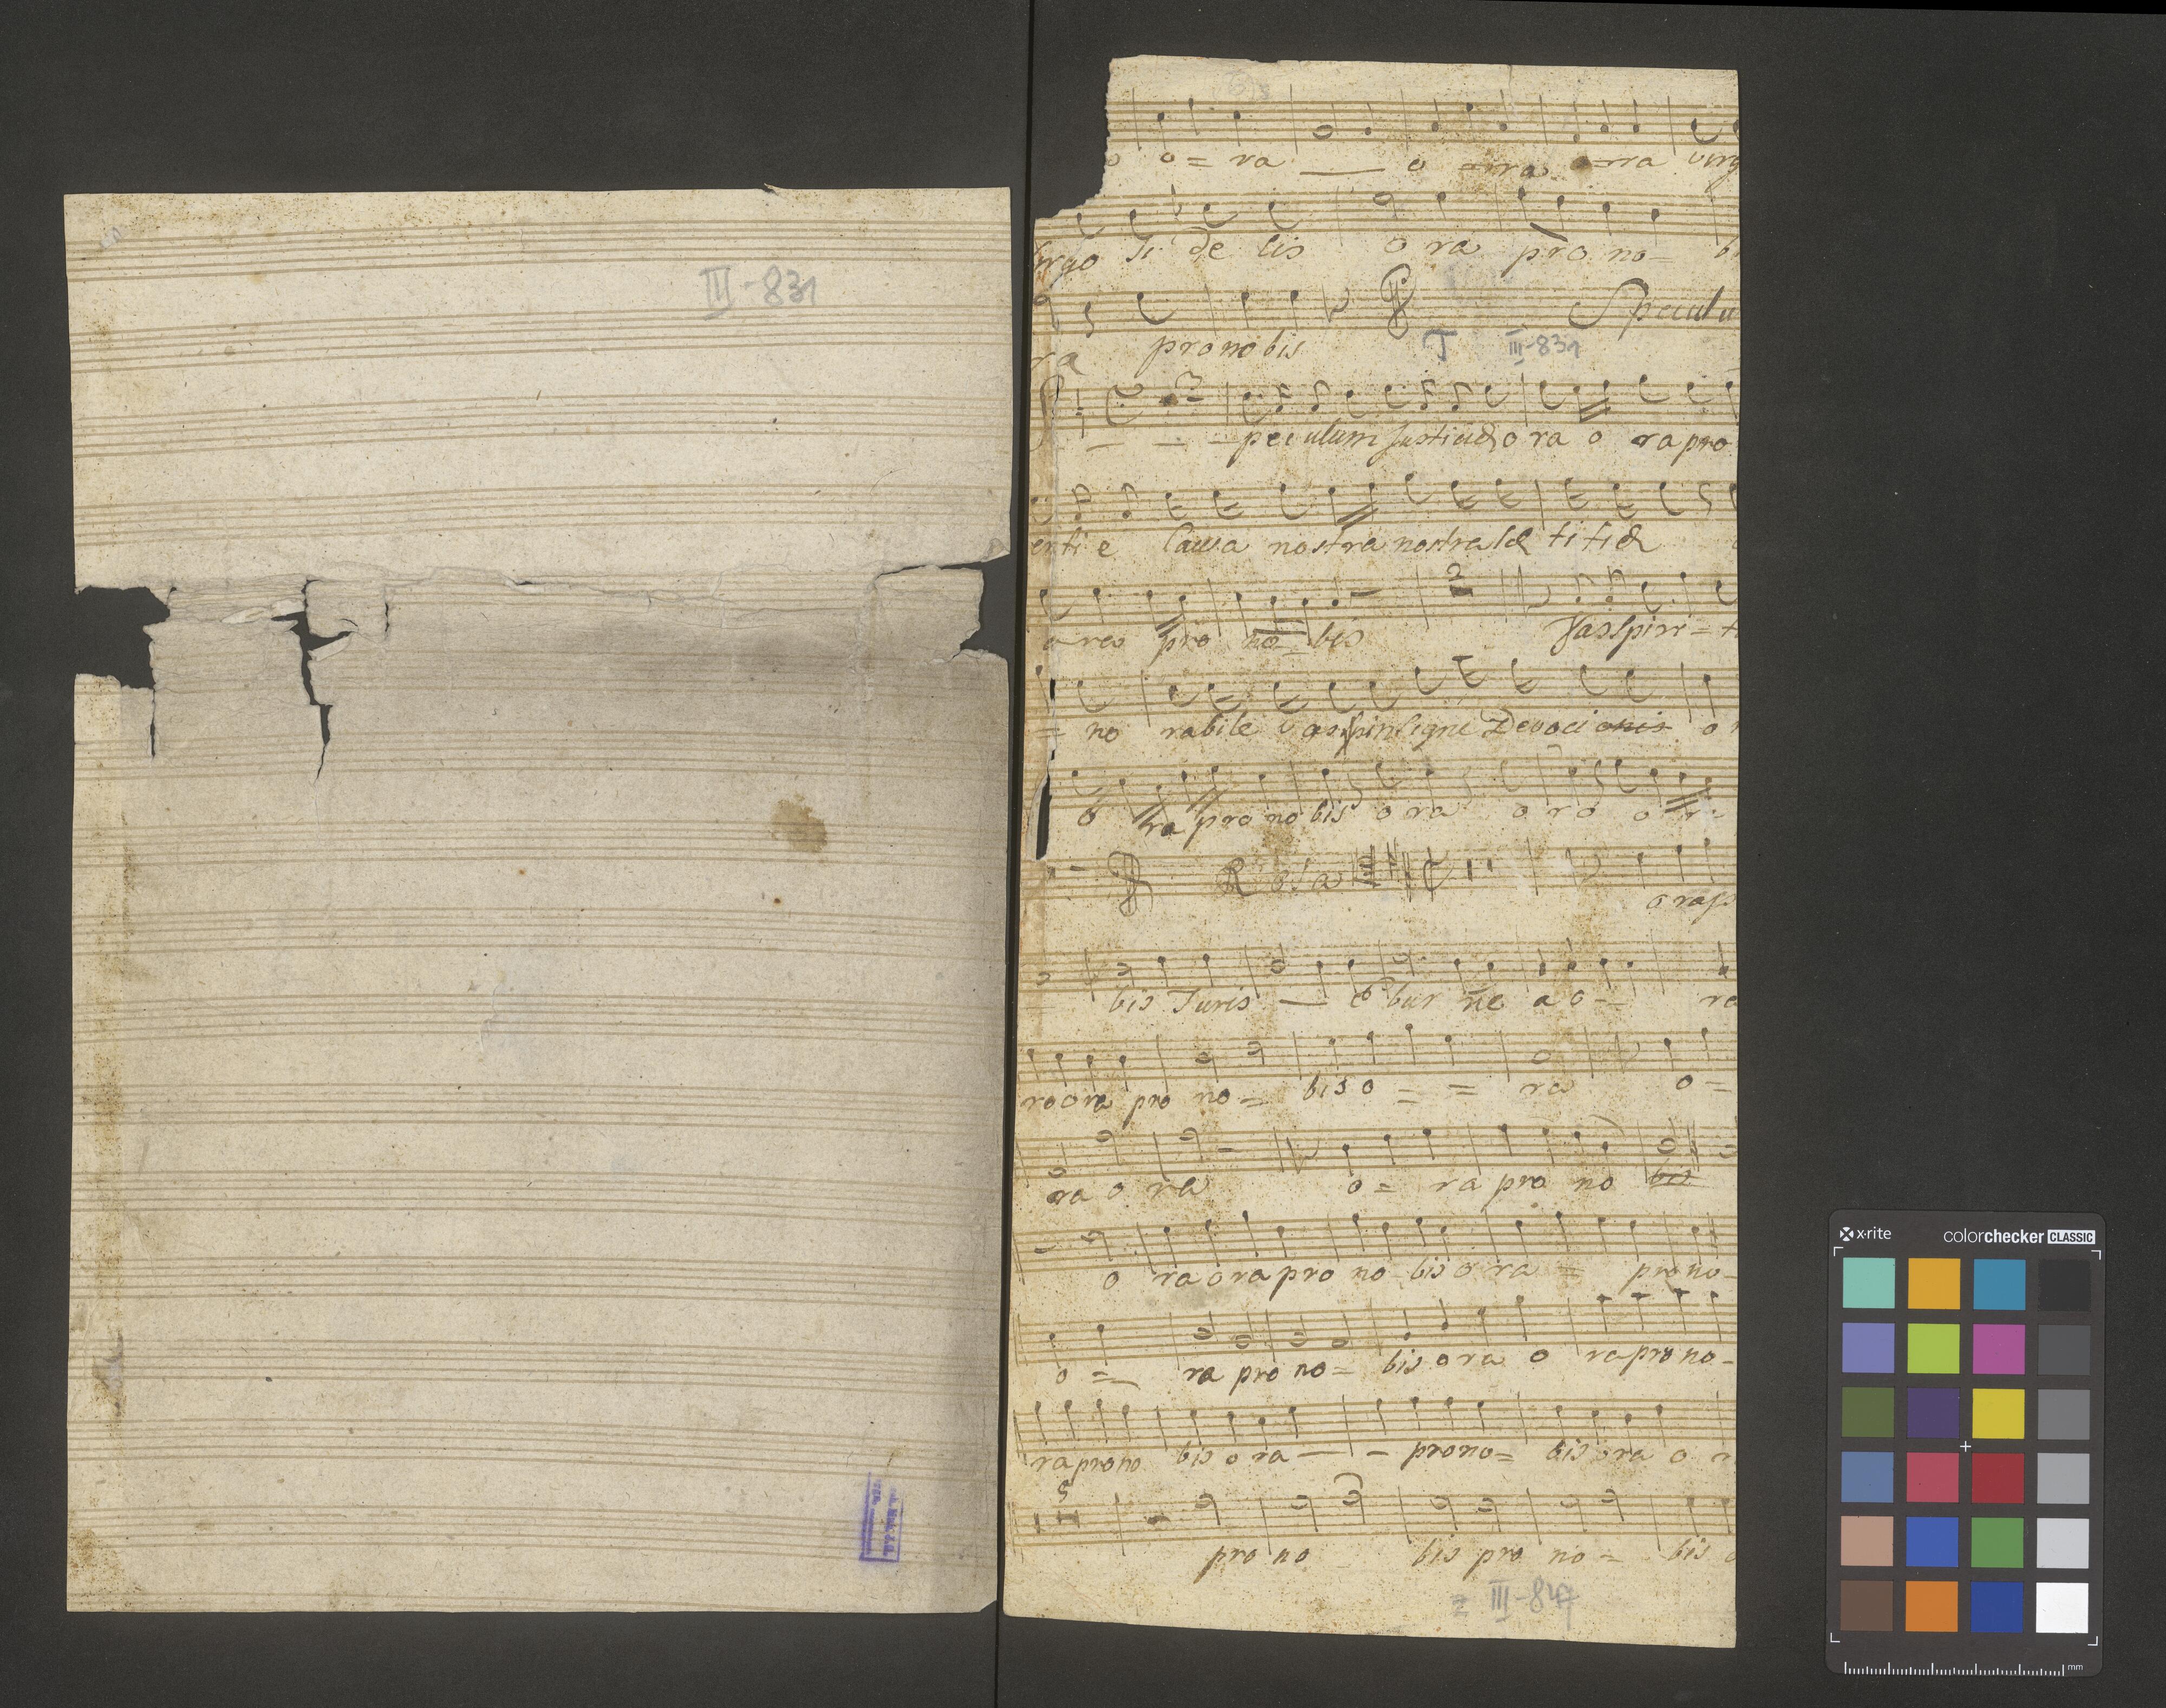 III-831
o = ra — o ra o ra virg
virgo fi de lis o ra pro no = bi
Specula
ra pro no bis
T III-831
peculum Justitiæ o ra o ra pro
enti e Causa nostra nostra læ ti tiæ
2
o ra pro no = bis Vas spiri = t
= no rabile Vas insigne Devoci onis o
o ra pro no bis o ra o ra o r
Rosa
o ra p
bis Turis — E bur ne a o = ra
ro ora pro no = bis o = = ra o =
ra o ra o = ra pro no bis
o ra o ra pro no bis o ra = pro no =
o = ra pro no = bis o ra o ra pro no =
ra pro no bis o ra — - pro no = bis o ra o r
5
pro no bis pro no = bis o
z III-847
x·rite colorchecker CLASSIC
mm